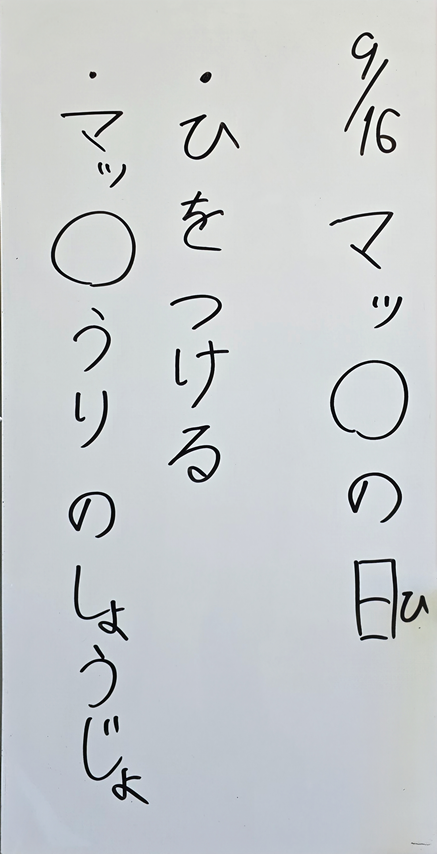 9/16 マッ○の日ひ
・ひをつける
・マッ○うりのしょうじょ